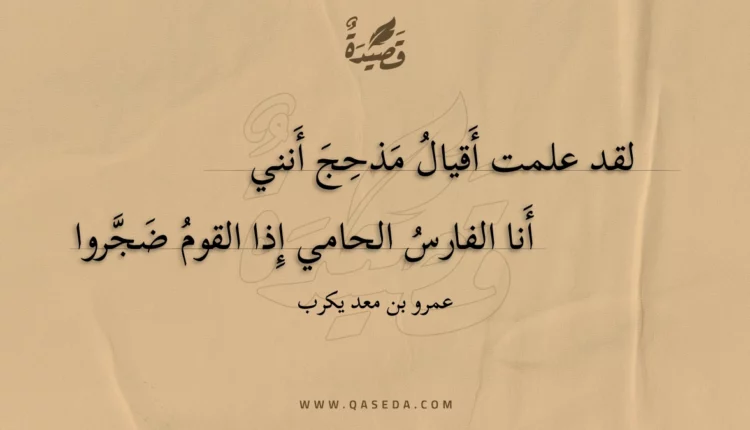 قَصِيْدَةٌ
لقد علمت أَقيالُ مَذحِجَ أَنني
أَنا الفارسُ الحامي إِذا القومُ ضَجَّروا
عمرو بن معد يكرب
WWW.QASEDA.COM